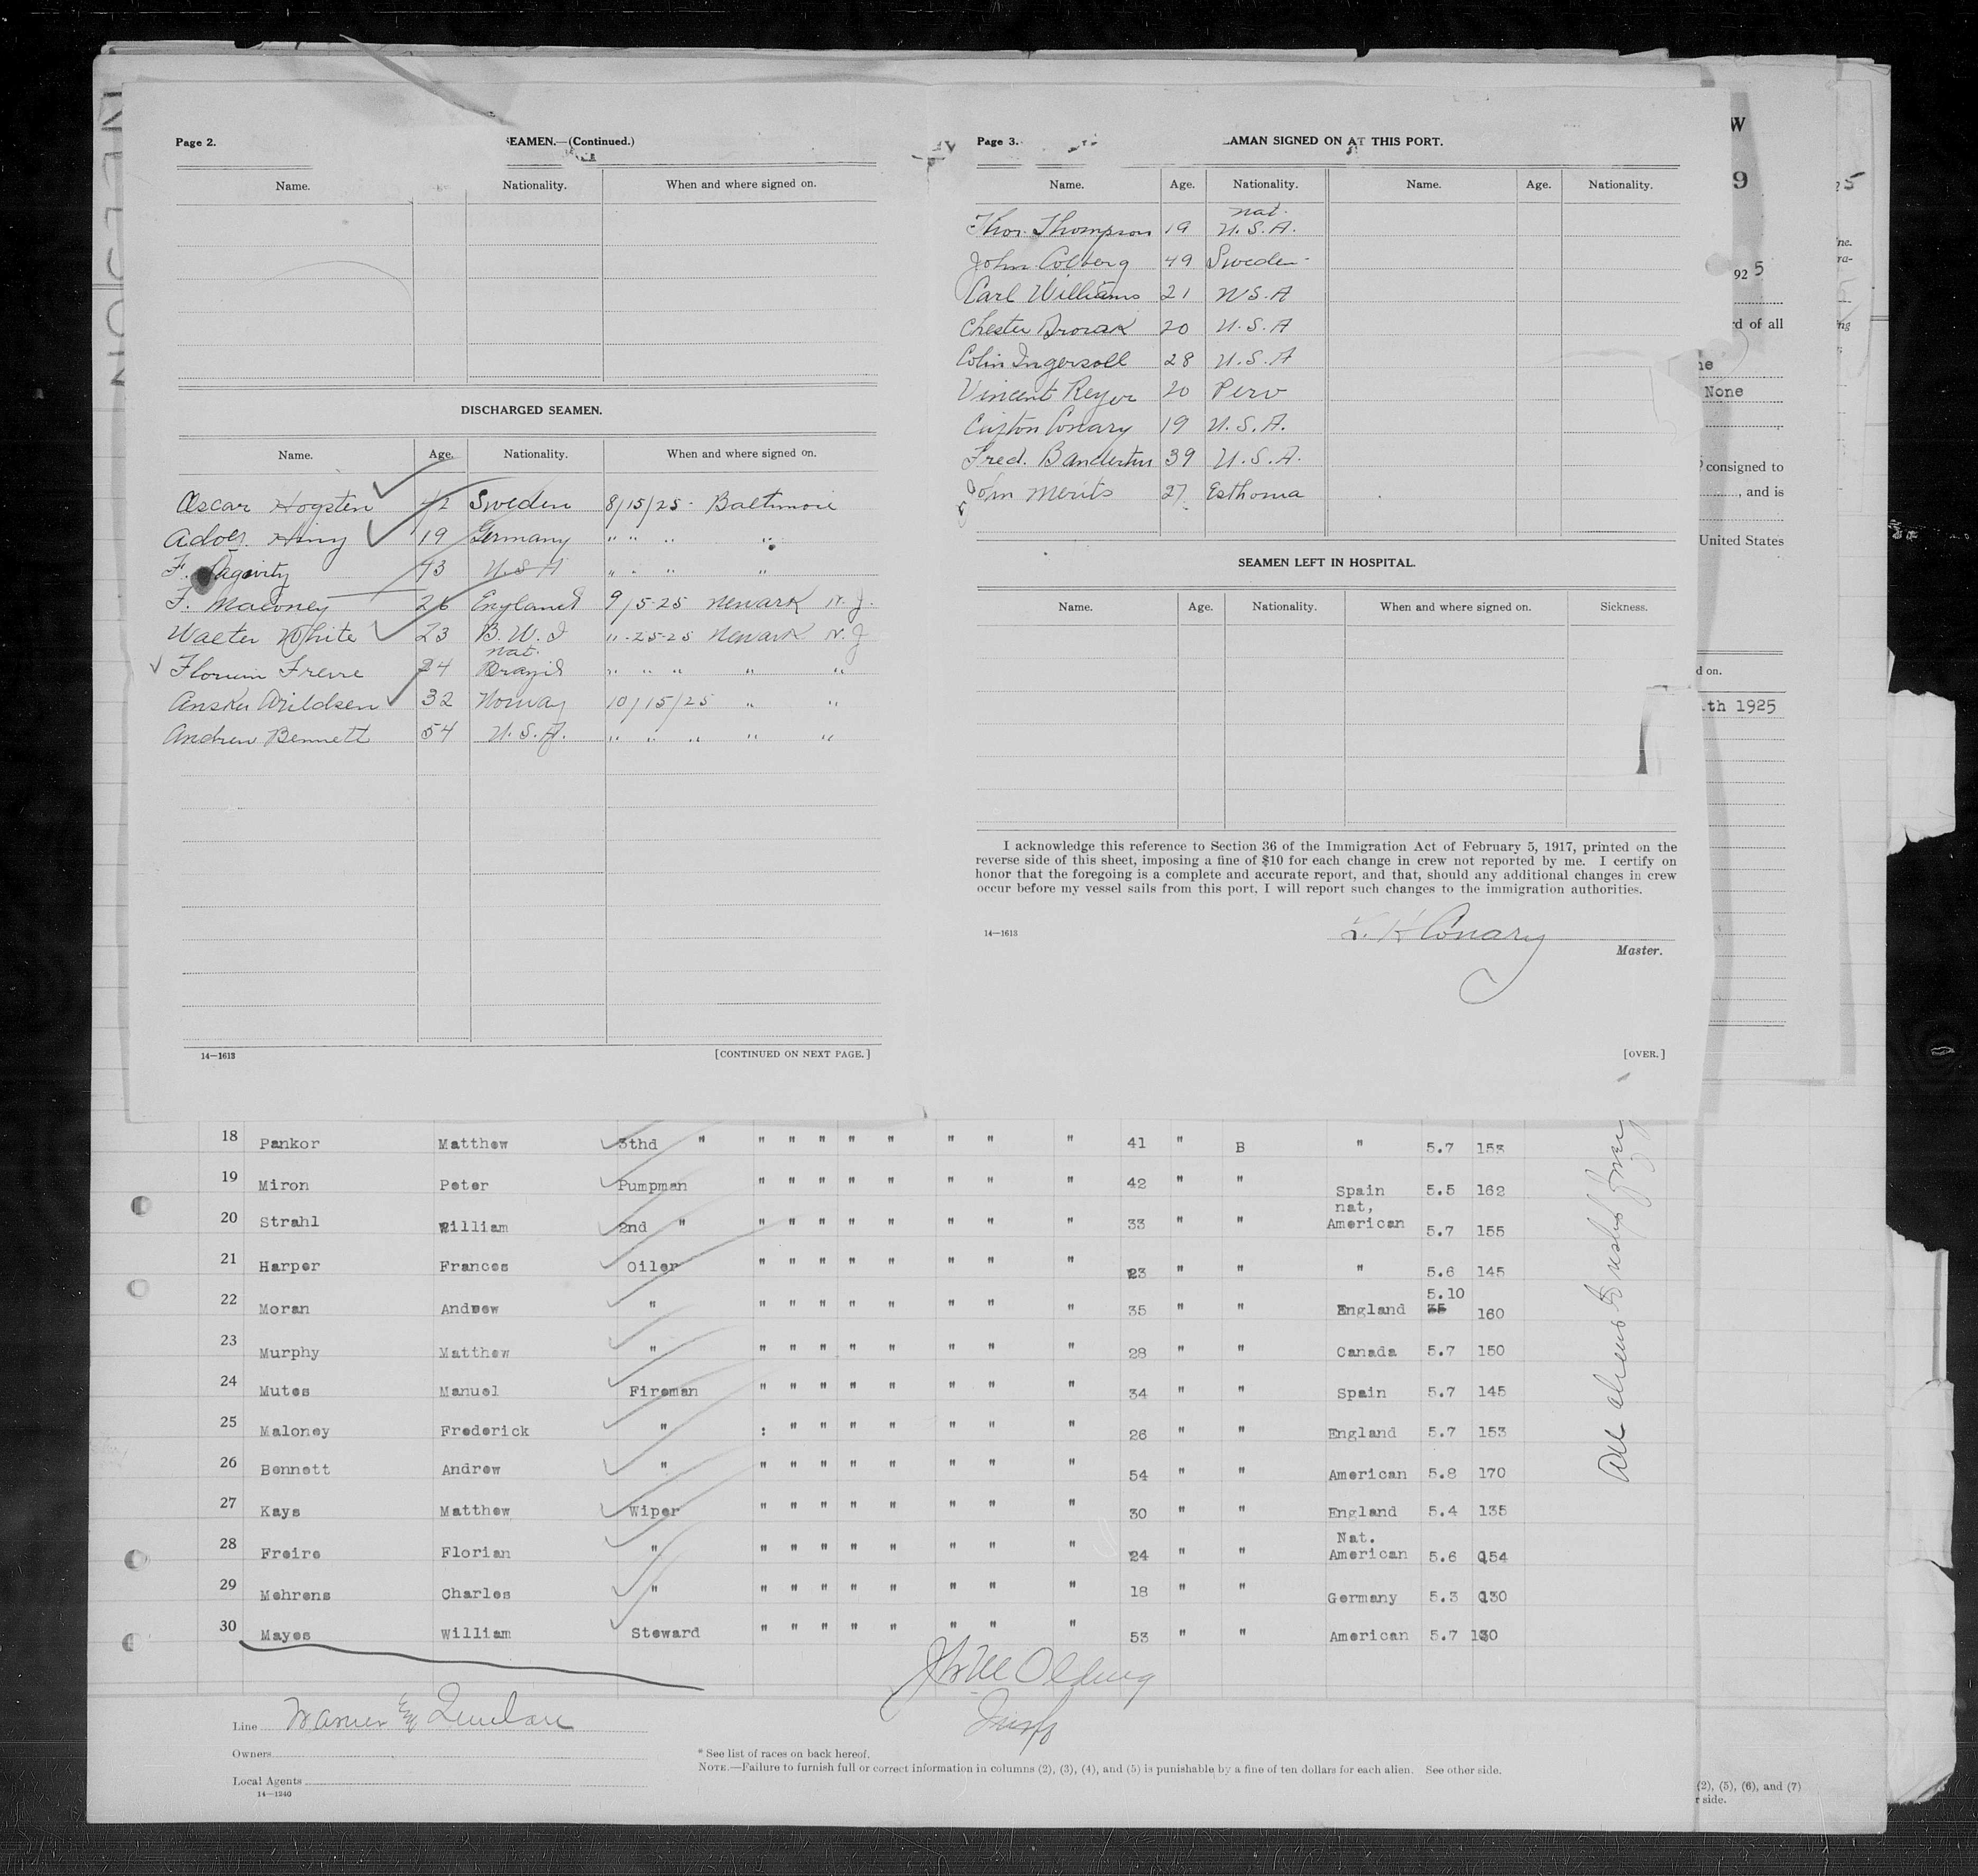 Page 2.
SEAMEN.—(Continued.)
Name. Nationality. When and where signed on.
DISCHARGED SEAMEN.
Name. Age. Nationality. When and where signed on.
Oscar Hogsten 42 Sweden 8/15/25 - Baltimore
Adolf 19 Germany " " " "
F. 43 U.S.A " " " "
F. Maloney 26 England 9/5-25 Newark N.J.
Walter White 23 B.W.I " -25-25 Newark N.J
nat.
Florian Freire 24 Brazil " " " " "
Arildsen 32 Norway 10/15/25 " "
Andrew Bennett 54 U.S.A. " " " " "
14—1613
[CONTINUED ON NEXT PAGE.]
Page 3.
AMAN SIGNED ON AT THIS PORT.
Name. Age. Nationality. Name. Age. Nationality.
nat.
Thos. Thompson 19 U.S.A.
John Colberg 49 Sweden -
Carl Williams 21 U.S.A
Chester 20 U.S.A
Colin Ingersoll 28 U.S.A
Vincent Reyer 20 Peru
Conary 19 U.S.A.
Fred. 39 U.S.A.
John Merits 27 Esthonia
SEAMEN LEFT IN HOSPITAL.
Name. Age. Nationality. When and where signed on. Sickness.
I acknowledge this reference to Section 36 of the Immigration Act of February 5, 1917, printed on the
reverse side of this sheet, imposing a fine of $10 for each change in crew not reported by me. I certify on
honor that the foregoing is a complete and accurate report, and that, should any additional changes in crew
occur before my vessel sails from this port, I will report such changes to the immigration authorities.
14—1613
L. K Conary
Master.
[OVER.]
W
9
925
rd of all
ne
None
consigned to
, and is
United States
d on.
th 1925
5
ne.
ra-
ng
18 Pankor Matthew 3thd " " " " " " " " " 41 " B " 5.7 153
19 Miron Peter Pumpman " " " " " " " " 42 " " Spain 5.5 162
nat,
20 Strahl William 2nd " " " " " " " " " 33 " " American 5.7 155
21 Harper Frances Oiler " " " " " " " " 23 " " " 5.6 145
5.10
22 Moran Andrew " " " " " " " " " 35 " " England 35 160
23 Murphy Matthew " " " " " " " " " 28 " " Canada 5.7 150
24 Mutes Manuel Fireman " " " " " " " " 34 " " Spain 5.7 145
25 Maloney Frederick " : " " " " " " " 26 " " England 5.7 153
26 Bennett Andrew " " " " " " " " " 54 " " American 5.8 170
27 Kays Matthew Wiper " " " " " " " " 30 " " England 5.4 135
Nat.
28 Freire Florian " " " " " " " " " 24 " " American 5.6 154
29 Mehrens Charles " " " " " " " " " 18 " " Germany 5.3 130
30 Mayes William Steward " " " " " " " " 53 " " American 5.7 130
All aliens
Line Warner Quinlan
Insp
Owners
Local Agents
14—1240
* See list of races on back hereof.
NOTE.—Failure to furnish full or correct information in columns (2), (3), (4), and (5) is punishable by a fine of ten dollars for each alien. See other side.
(2), (5), (6), and (7)
r side.